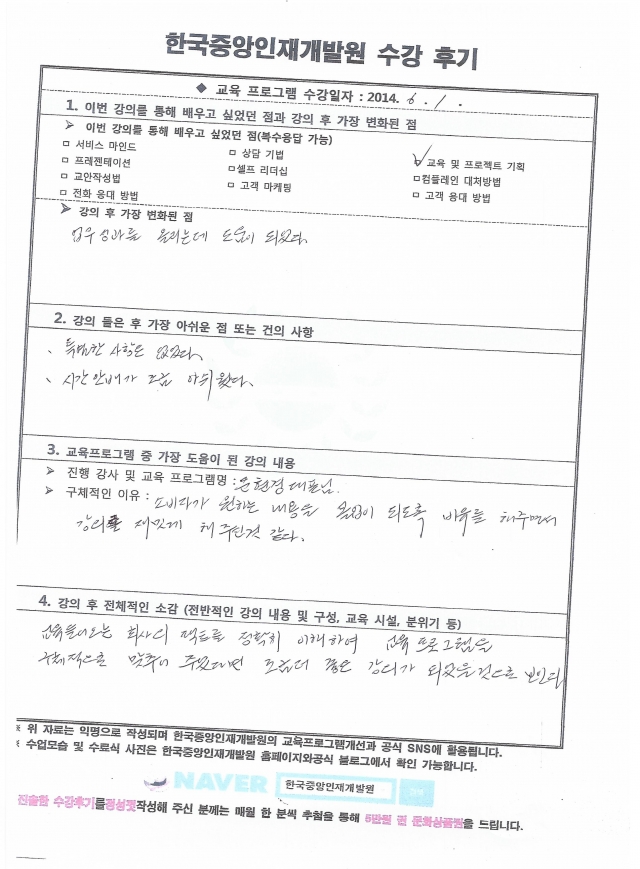 한국중앙인재개발원 수강 후기
◆ 교육 프로그램 수강일자 : 2014. 6. 1.
1. 이번 강의를 통해 배우고 싶었던 점과 강의 후 가장 변화된 점
➢ 이번 강의를 통해 배우고 싶었던 점(복수응답 가능)
□ 서비스 마인드 □ 상담 기법 ☑ 교육 및 프로젝트 기획
□ 프레젠테이션 □ 셀프 리더십 □ 컴플레인 대처방법
□ 교안작성법 □ 고객 마케팅 □ 고객 응대 방법
□ 전화 응대 방법
➢ 강의 후 가장 변화된 점
업무성과를 올리는데 도움이 되었다.
2. 강의 들은 후 가장 아쉬운 점 또는 건의 사항
、 특별한 사항은 없었다.
、 시간안배가 조금 아쉬웠다.
3. 교육프로그램 중 가장 도움이 된 강의 내용
➢ 진행 강사 및 교육 프로그램명 : 은현경 대표님.
➢ 구체적인 이유 : 소비자가 원하는 내용을 몰입이 되도록 비유를 해주면서
강의를 재밌게 해주신것 같다.
4. 강의 후 전체적인 소감 (전반적인 강의 내용 및 구성, 교육 시설, 분위기 등)
교육들어오는 회사의 목표를 정확히 이해하여 교육프로그램을
구체적으로 맞추어 주었다면 조금더 좋은 강의가 되었을것으로 보인다
※ 위 자료는 익명으로 작성되며 한국중앙인재개발원의 교육프로그램개선과 공식 SNS에 활용됩니다.
※ 수업모습 및 수료식 사진은 한국중앙인재개발원 홈페이지와공식 블로그에서 확인 가능합니다.
NAVER 한국중앙인재개발원
진솔한 수강후기를정성껏작성해 주신 분께는 매월 한 분씩 추첨을 통해 5만원 권 문화상품권을 드립니다.